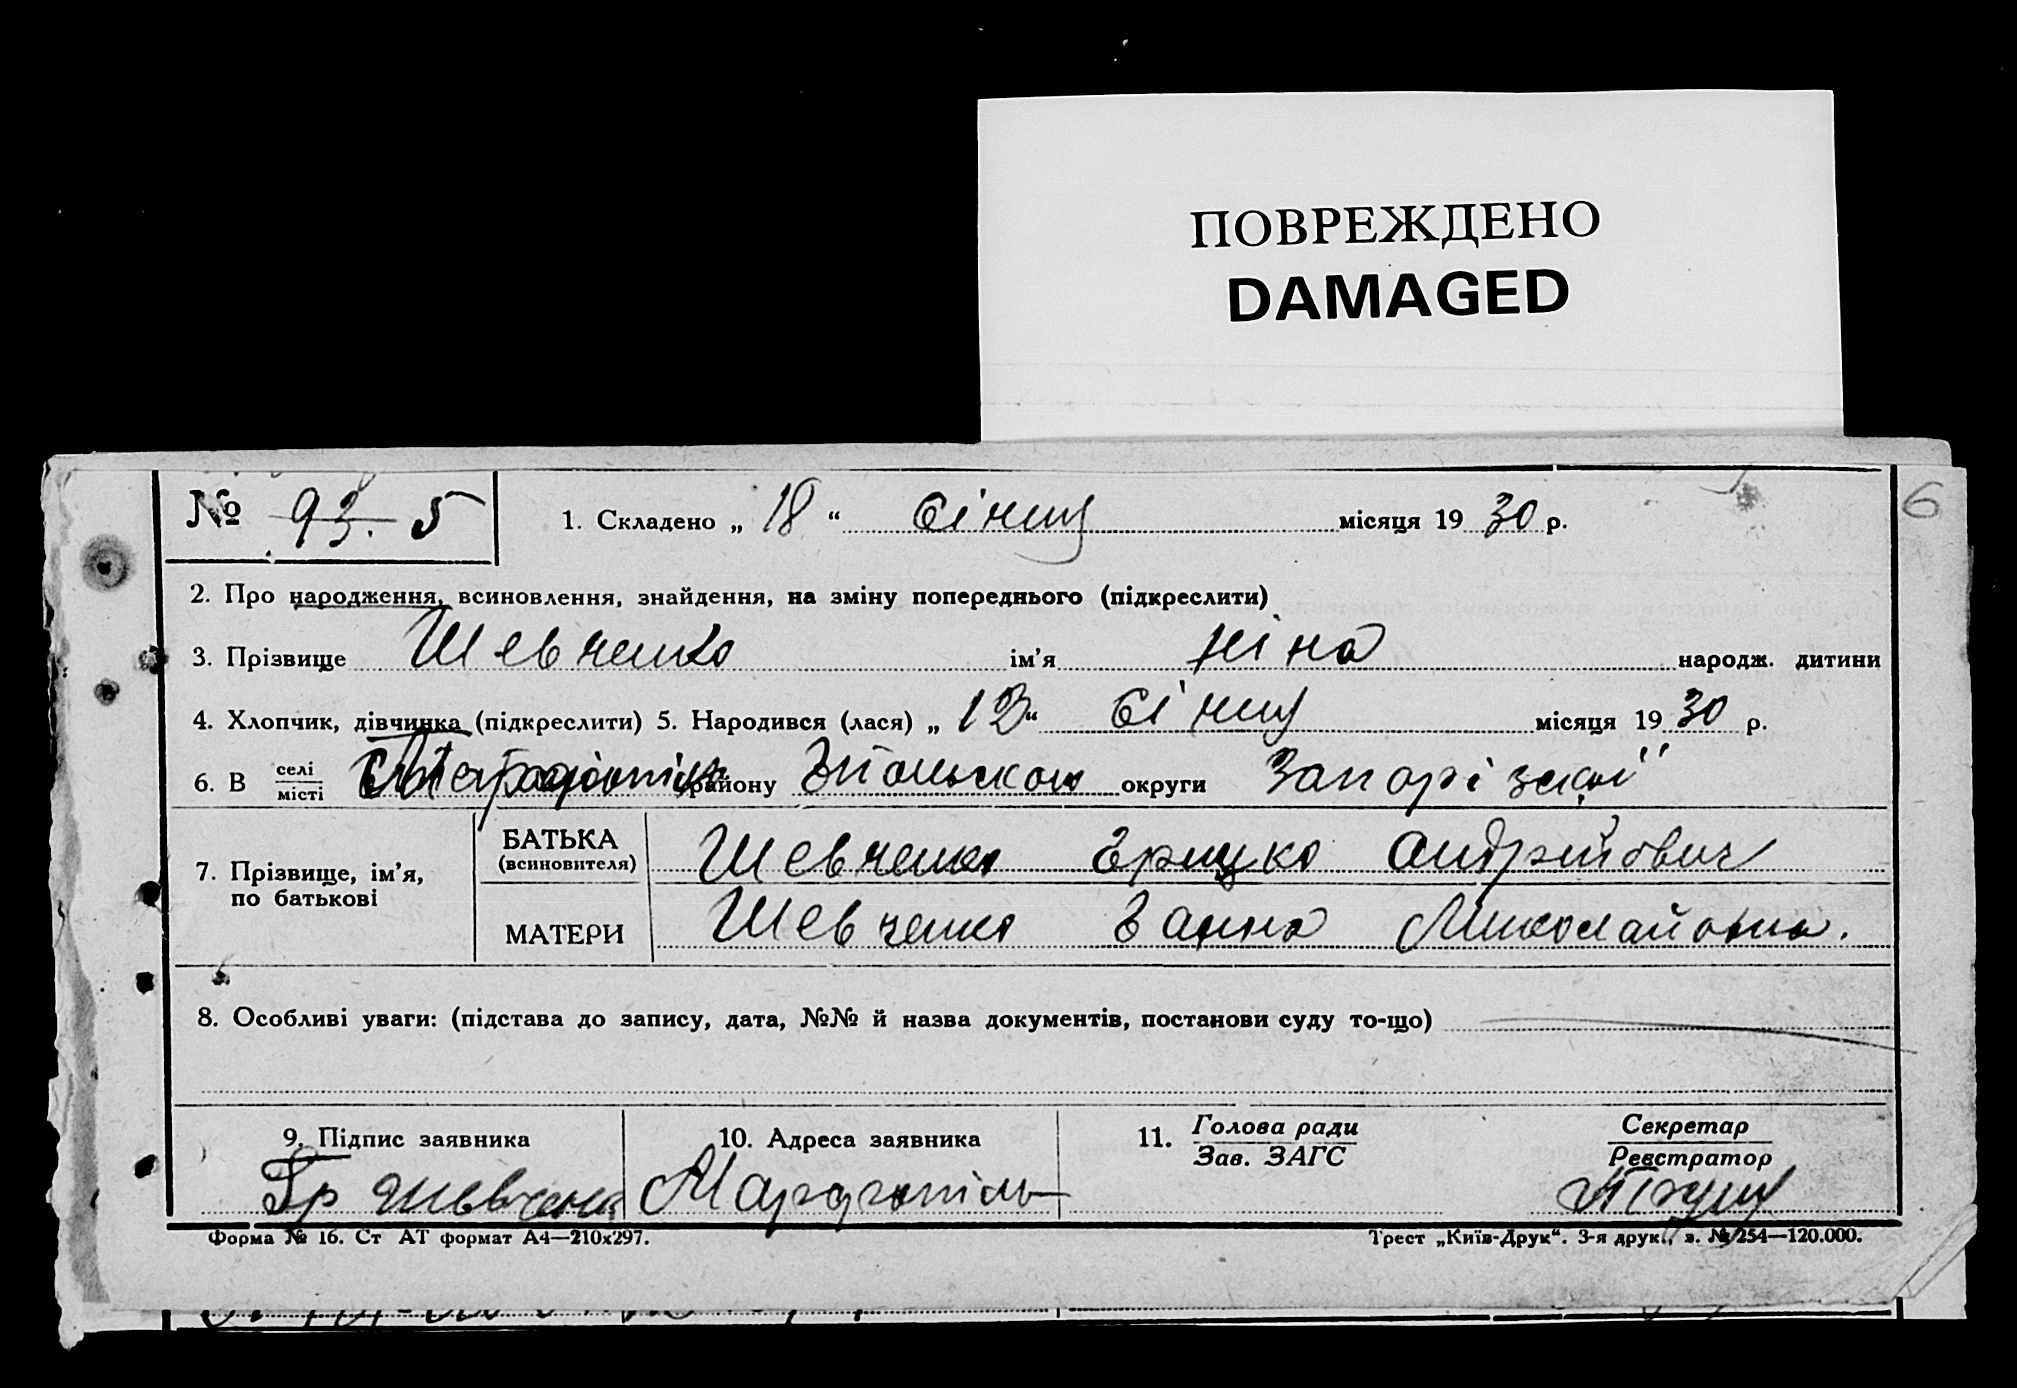 ПОВРЕЖДЕНО
DAMAGED
6
№ 93. 5
1. Складено „ 18 “ січня місяця 19 30 р.
2. Про народження, всиновлення, знайдення, на зміну попереднього (підкреслити)
3. Прізвище Шевченко ім’я Ніна народж. дитини
4. Хлопчик, дівчинка (підкреслити) 5. Народився (лася) „ 13 “ січня місяця 19 30 р.
6. В селі місті району округи Запорізької
7. Прізвище, ім’я, по батькові
БАТЬКА (всиновителя) Шевченко Грицко Андрійович
МАТЕРИ Шевченко Ганна Миколайовна.
8. Особливі уваги: (підстава до запису, дата, №№ й назва документів, постанови суду то-що)
9. Підпис заявника
10. Адреса заявника
11. Голова ради Зав. ЗАГС
Секретар Реєстратор
Гр Шевченко
Форма № 16. Ст АТ формат А4—210х297.
Трест „Київ-Друк“. 3-я друк., з. № 254—120.000.